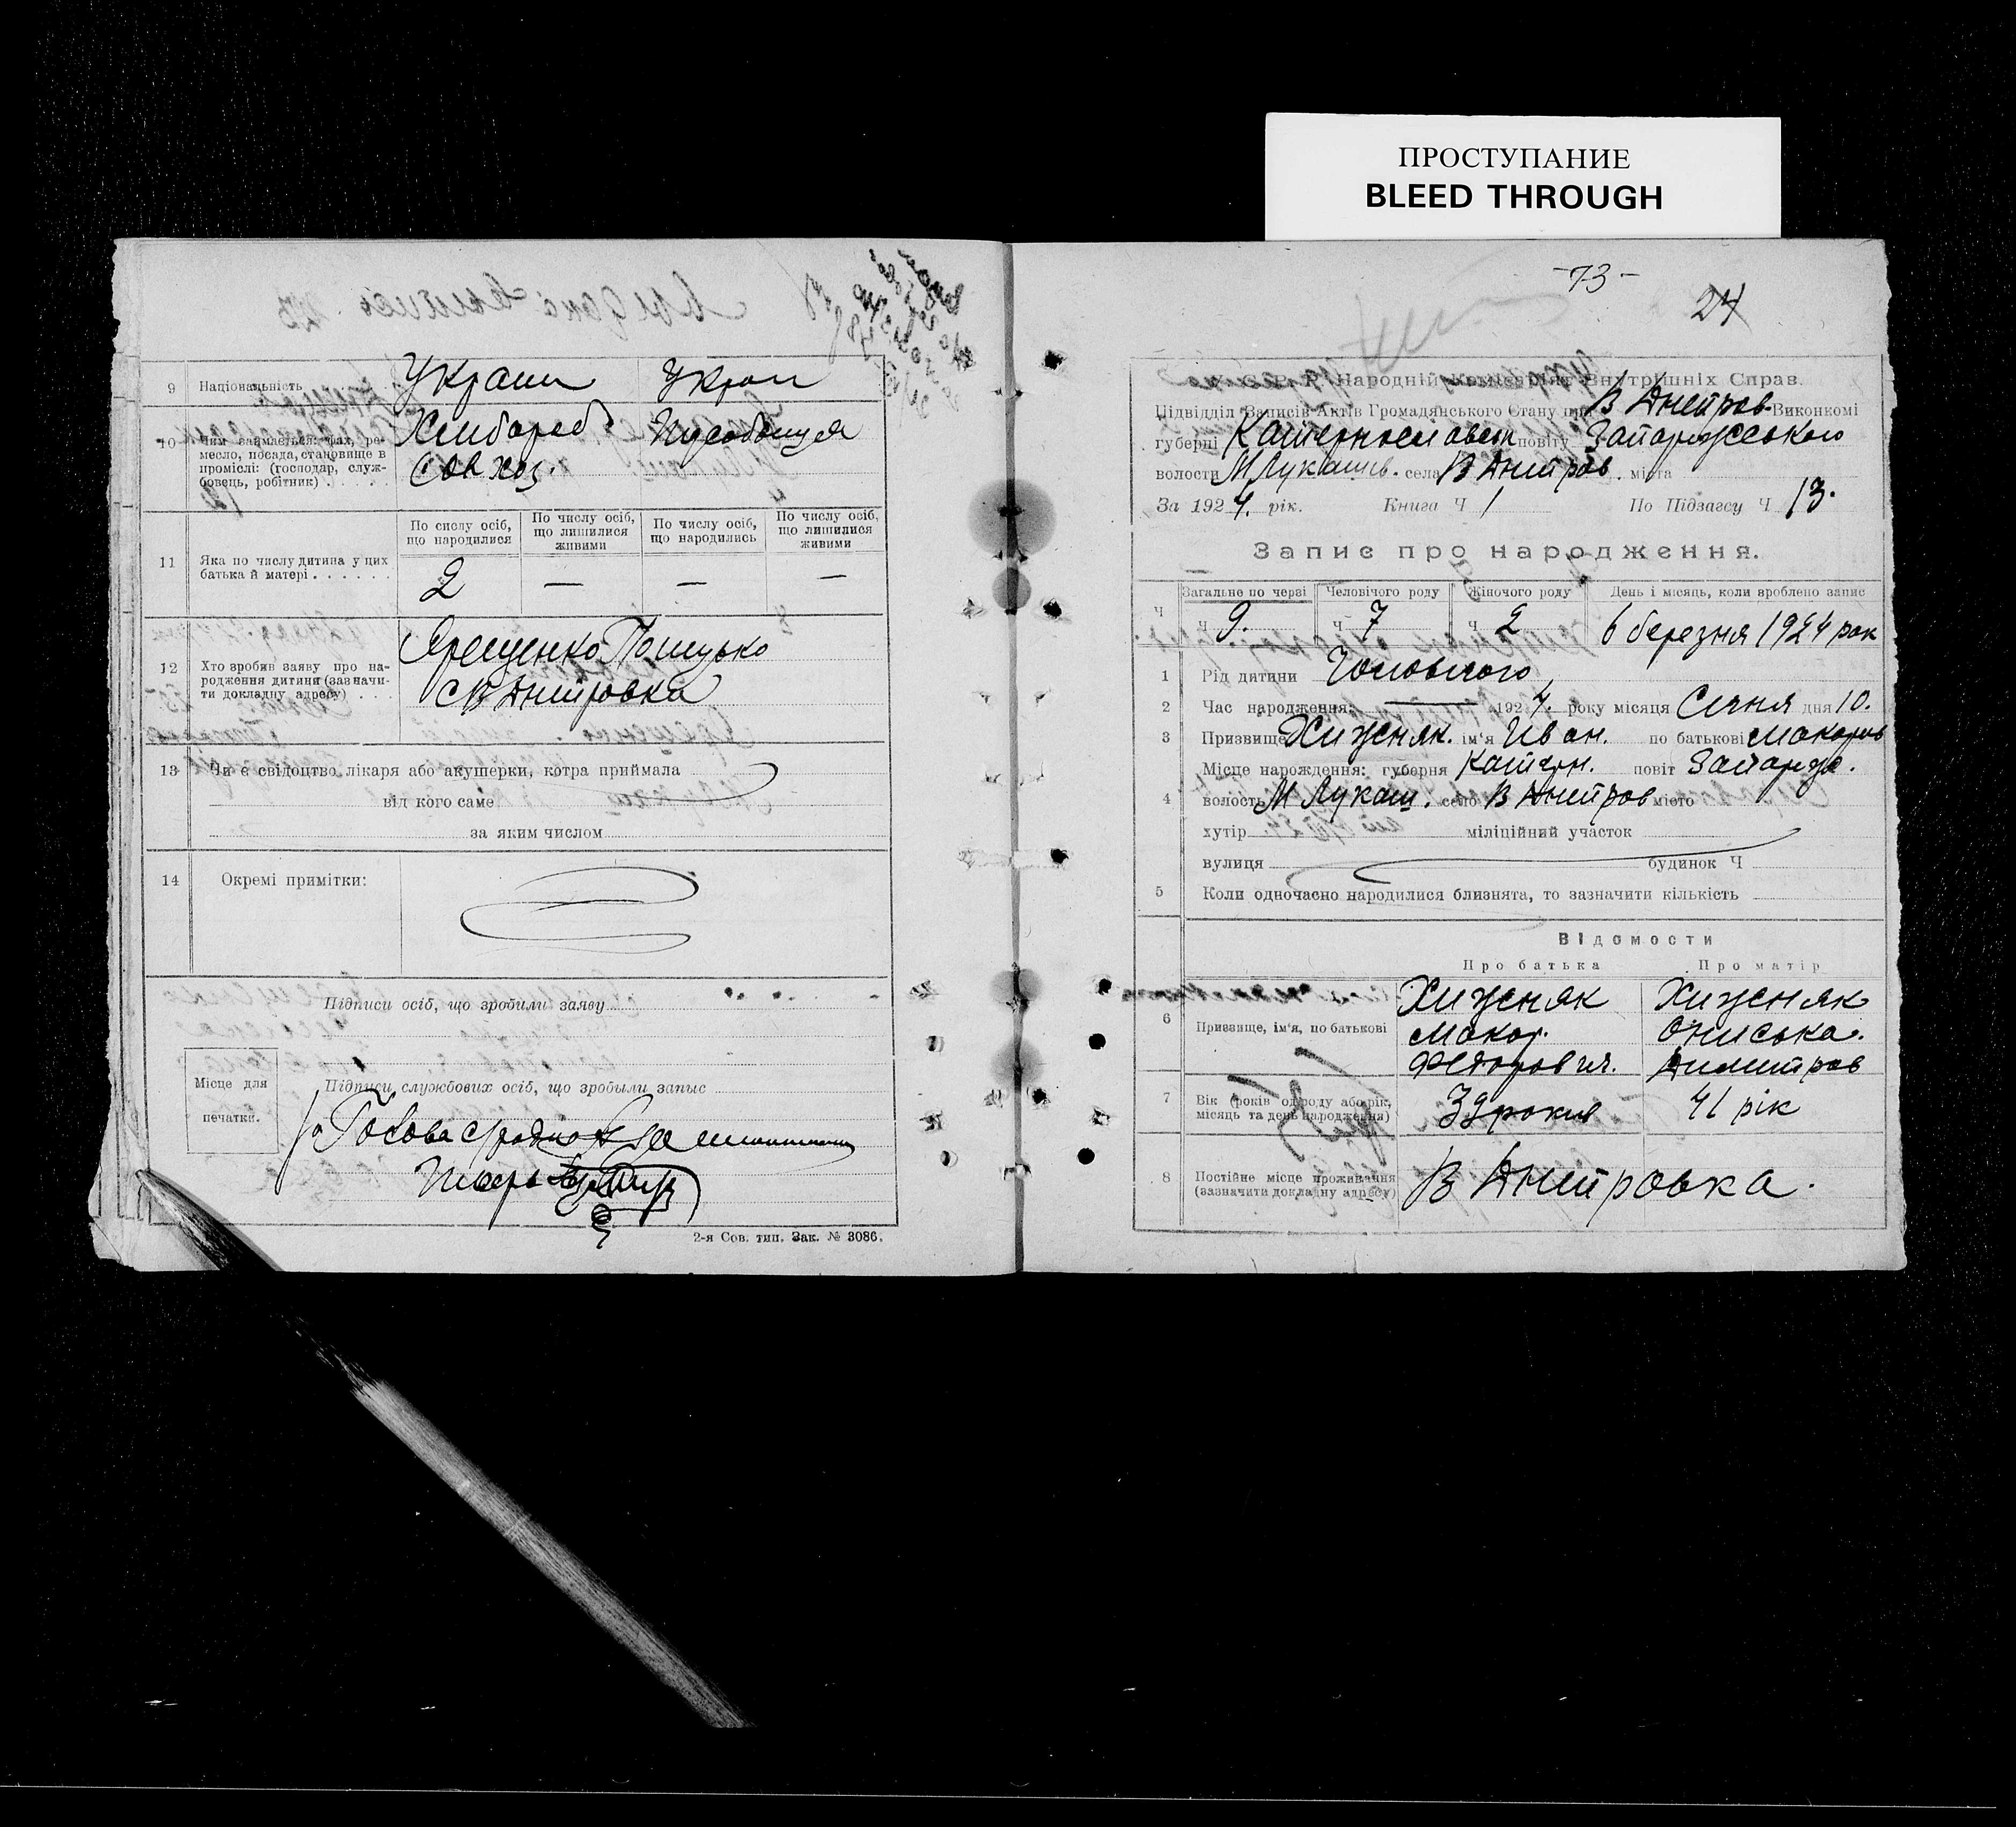 ПРОСТУПАНИЕ
BLEED THROUGH
9 Національність Украин Украп
10 Чим займається: фах, ре-
месло, посада, становище в
промислі: (господар, служ-
бовець, робітник)
Хлибороб
Совхоз.
11 Яка по числу дитина у цих
батька й матері
По сислу осіб,
що народилися
По числу осіб,
що лишилися
живими
По числу осіб,
що народились
По числу осіб,
що лишилися
живими
2 — — —
12 Хто зробив заяву про на-
родження дитини (зазначи-
ти докладну адресу)
Ярещенко
с В Дмитровка
13 Чи є свідоцтво лікаря або акушерки, котра приймала
від кого саме
за яким числом
14 Окремі примітки:
Підписи осіб, що зробили заяву
Місце для
печатки.
Підписи службових осіб, що зробыли запыс
2-я Сов. тип. Зак. № 3086.
-73-
24
У. С. Р. Р. Народній Комісаріят Внутрішніх Справ.
Підвідділ Записів Актів Громадянського Стану при В Дмитров Виконкомі
губерні Катеринославськ повіту Запоріжського
волости М Лукашів. села В Дмитров. міста
За 1924. рік. Книга Ч 1 По Підзагсу Ч 13.
Запис про народження.
Ч Загальне по черзі Человічого роду Жіночого роду День і місяць, коли вроблено запис
Ч 9. Ч 7 Ч 2 6 березня 1924 рок
1 Рід дитини Чоловічого
2 Час народження: — 1924. року місяця Січня дня 10.
3 Призвище Хижняк. ім'я Иван. по батькові Макаров
4 Місце народження: губерня Катерн. повіт Запоріж.
волость М Лукаш. село В Дмитров місто
хутір міліційний участок
вулиця будинок Ч
5 Коли одночасно народилися близнята, то зазначити кількість
Відомости
Про батька Про матір
6 Призвище, ім'я, по батькові
Хижняк Хижняк
Макар. Ониська.
Федорович. Димитров
7 Вік (років од роду або рік,
місяць та день народження)
39 рокив 41 рік
8 Постійне місце проживання
(зазначити докладну адресу)
В Дмитровка.